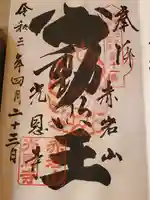 奉拝
赤岩山
不動明王
光恩寺
令和三年四月二十三日